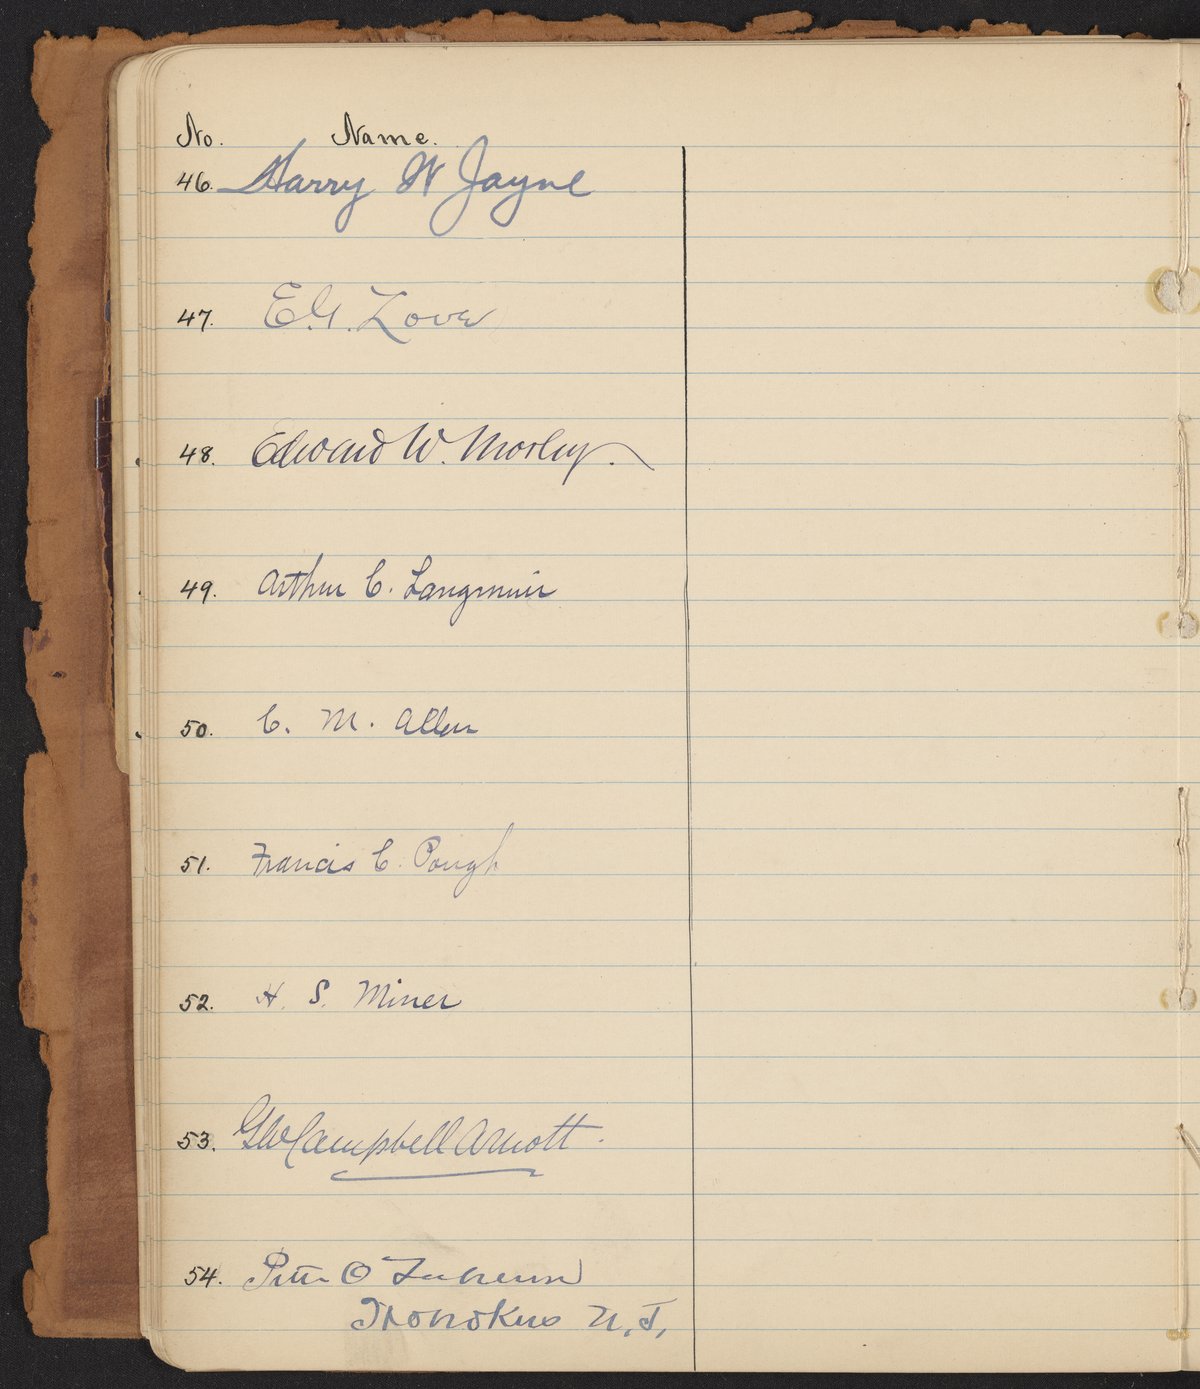 No. Name.
46. Harry W Jayne
47. E.G. Love
48. Edward W. Morley.
49. Arthur C. Langmuir
50. C. M. Allen
51. Francis C. Pough
52. H. S. Miner
53. Geo Campbell Arnott.
54. Peter O
N. J.